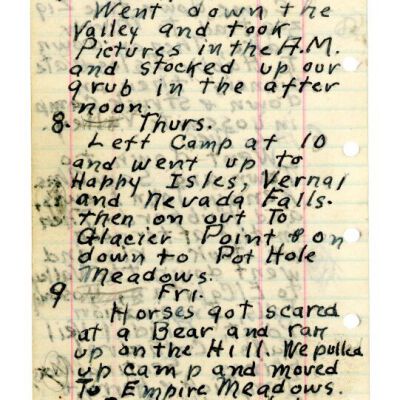 Went down the
Valley and took
Pictures in the A.M.
and stocked up our
grub in the after
noon.
8. Thurs.
Left Camp at 10
and went up to
Happy Isles, Vernal
and Nevada Falls.
then on out To
Glacier Point & on
down to Pot Hole
Meadows.
9 Fri.
Horses got scared
at a Bear and ran
up on the Hill. We pulled
up camp and moved
To Empire Meadows.